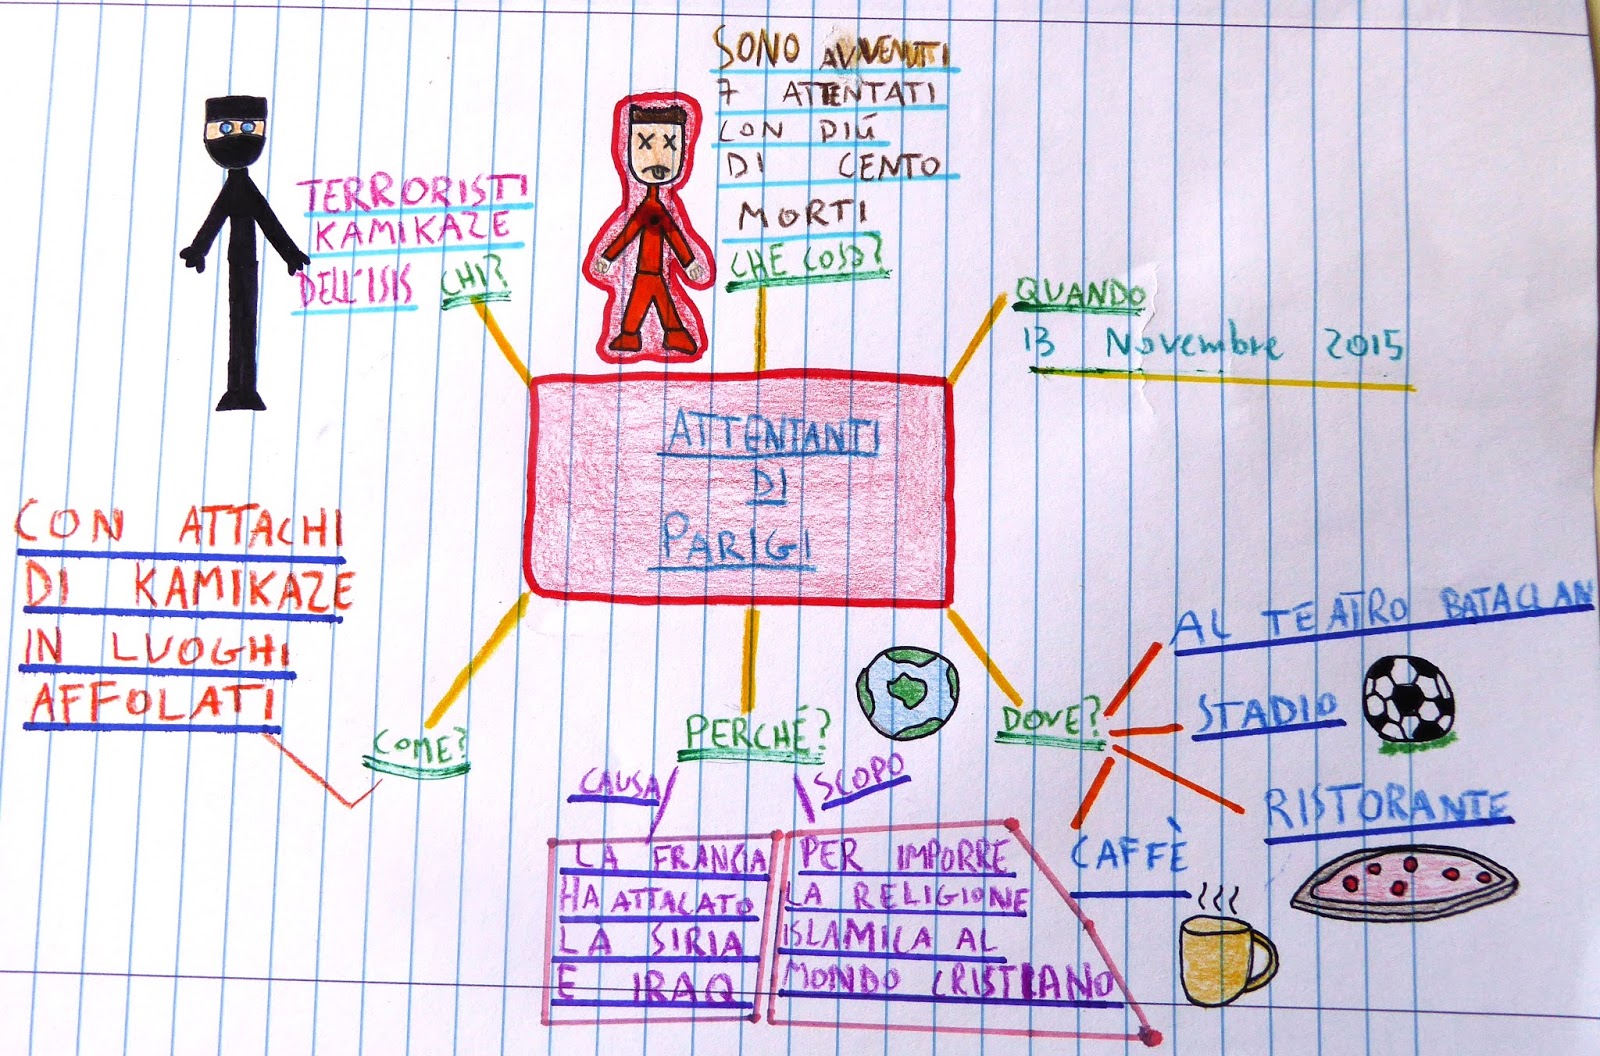 SONO AVVENUTI
7 ATTENTATI
CON PIÚ
DI CENTO
MORTI
CHE COSA?
TERRORISTI
KAMIKAZE
DELL'ISIS CHI?
QUANDO
13 Novembre 2015
ATTENTANTI
DI
PARIGI
CON ATTACHI
DI KAMIKAZE
IN LUOGHI
AFFOLATI
COME?
PERCHÉ?
CAUSA
SCOPO
LA FRANCIA
HA ATTACATO
LA SIRIA
E IRAQ
PER IMPORRE
LA RELIGIONE
ISLAMICA AL
MONDO CRISTIANO
DOVE?
AL TEATRO BATACLAN
STADIO
RISTORANTE
CAFFÈ